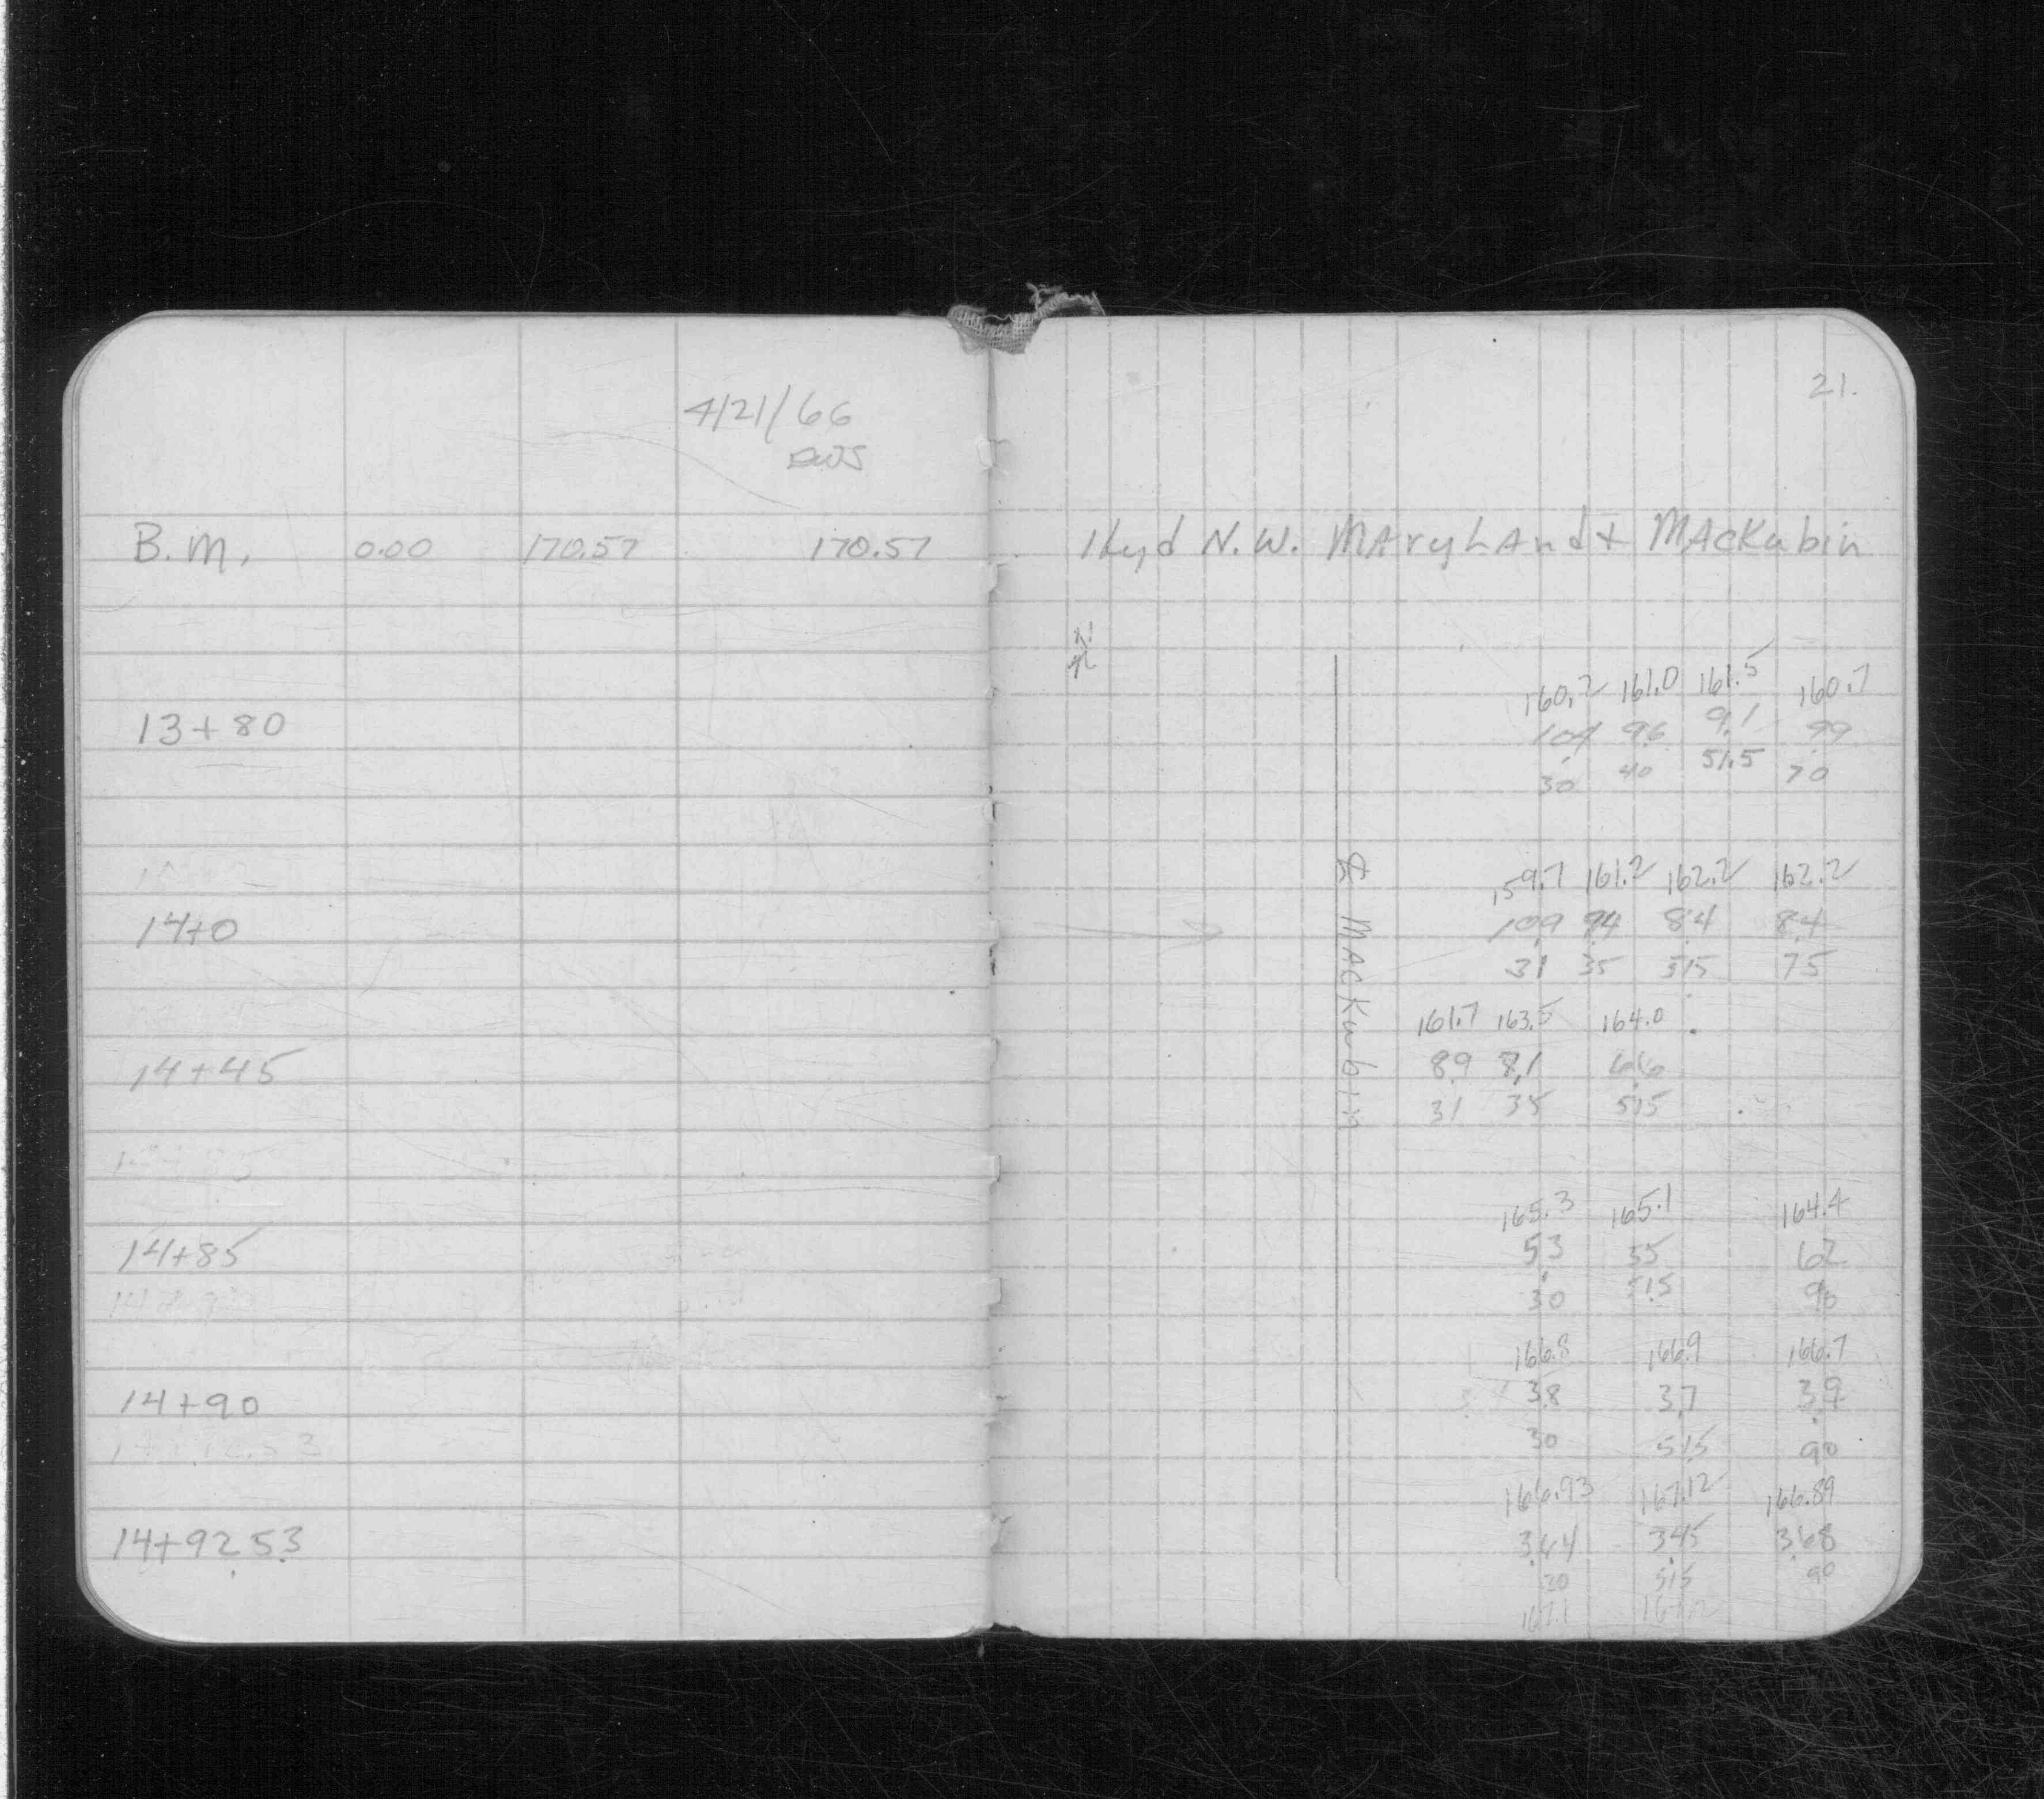 4/21/66
EWS
21.
B.M. 0.00 170.57 170.57
Hyd N.W. MAryLAnd & MAcKubin
160.2 161.0 161.5 160.7
13+80 10.4 9.6 9.1 9.9
30 40 51.5 70
159.7 161.2 162.2 162.2
14+0 10.9 9.4 8.4 8.4
31 35 51.5 75
℄ MAcKubin
161.7 163.5 164.0
14+45 8.9 8.1 6.6
31 35 51.5
165.3 165.1 164.4
14+85 5.3 5.5 6.2
30 51.5 90
166.8 166.9 166.7
14+90 3.8 3.7 3.9
30 51.5 90
166.93 167.12 166.89
14+92.53 3.64 3.45 3.68
30 51.5 90
167.1 167.2